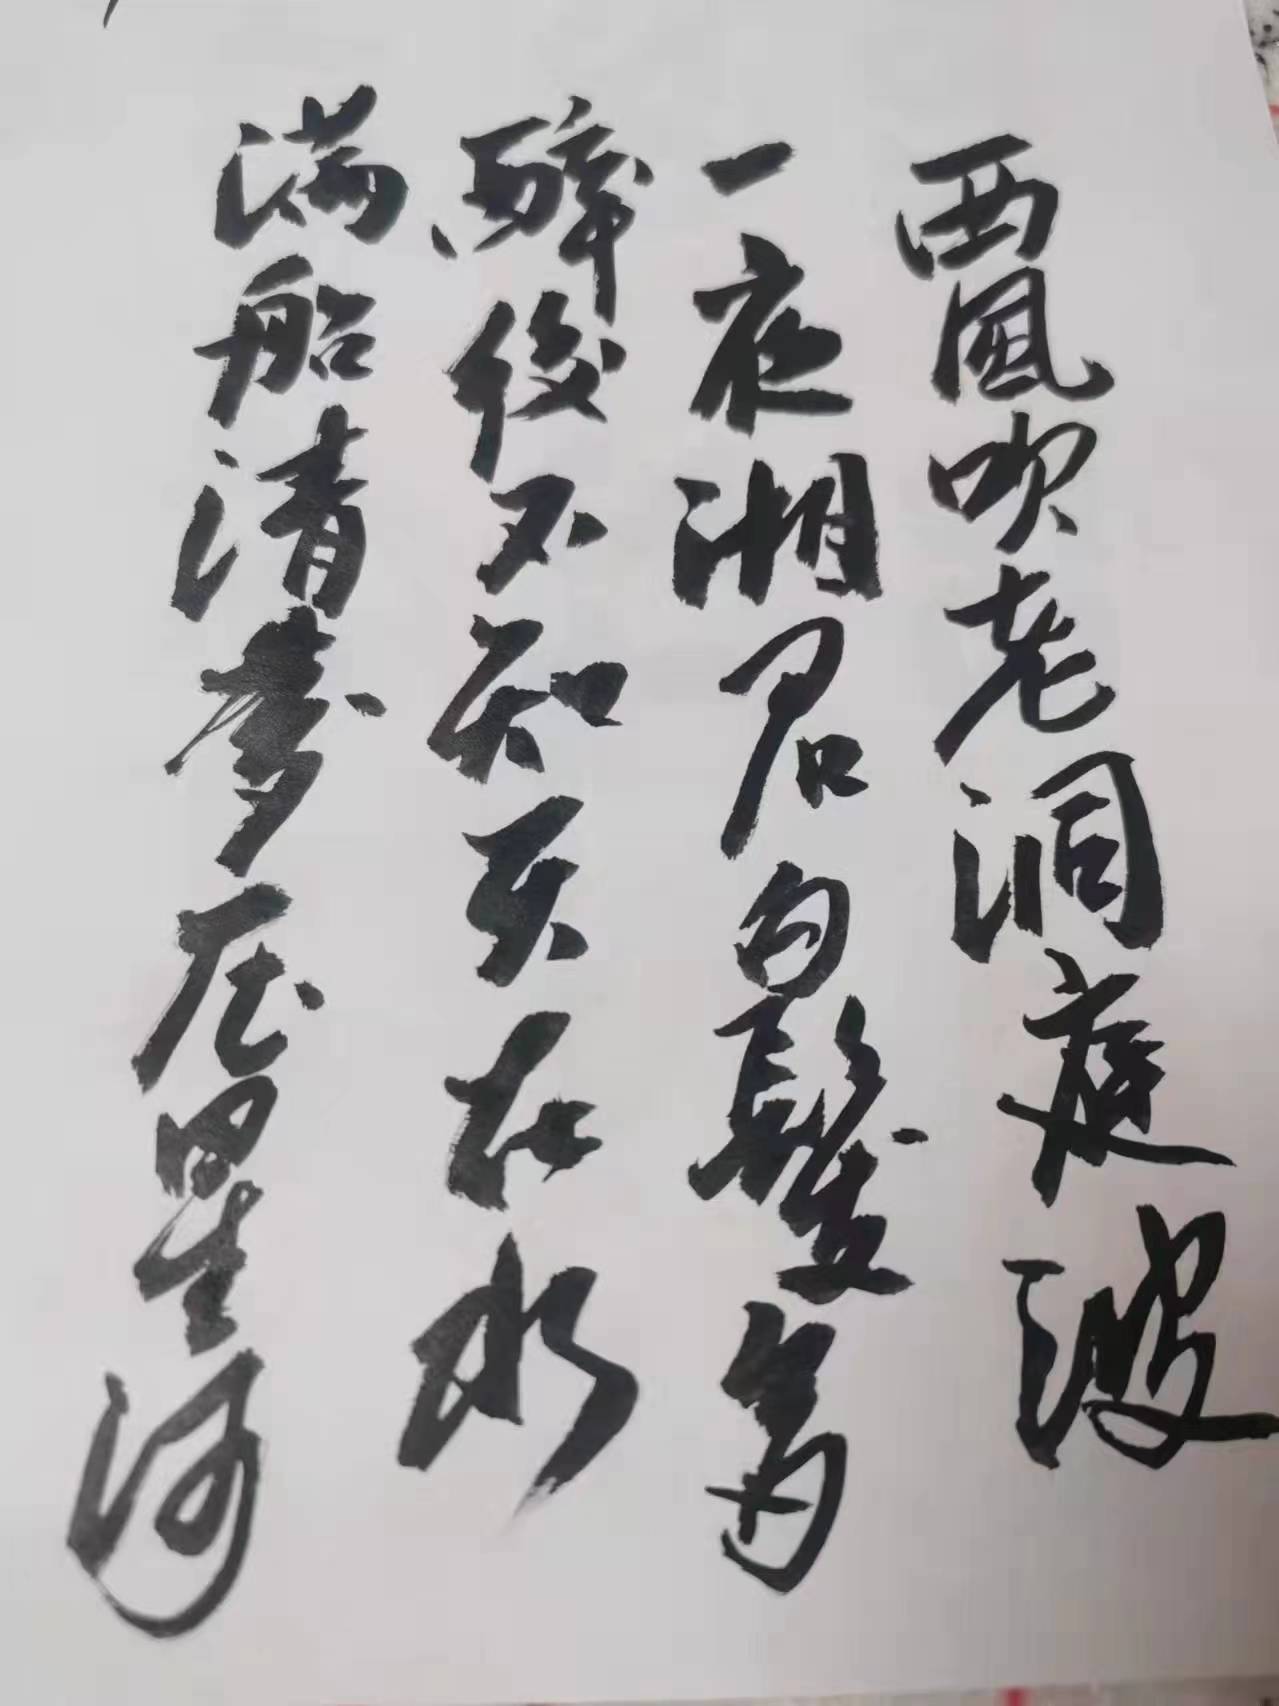 西風吹老洞庭波
一夜湘君白髮多
醉後不知天在水
满船清夢压星河